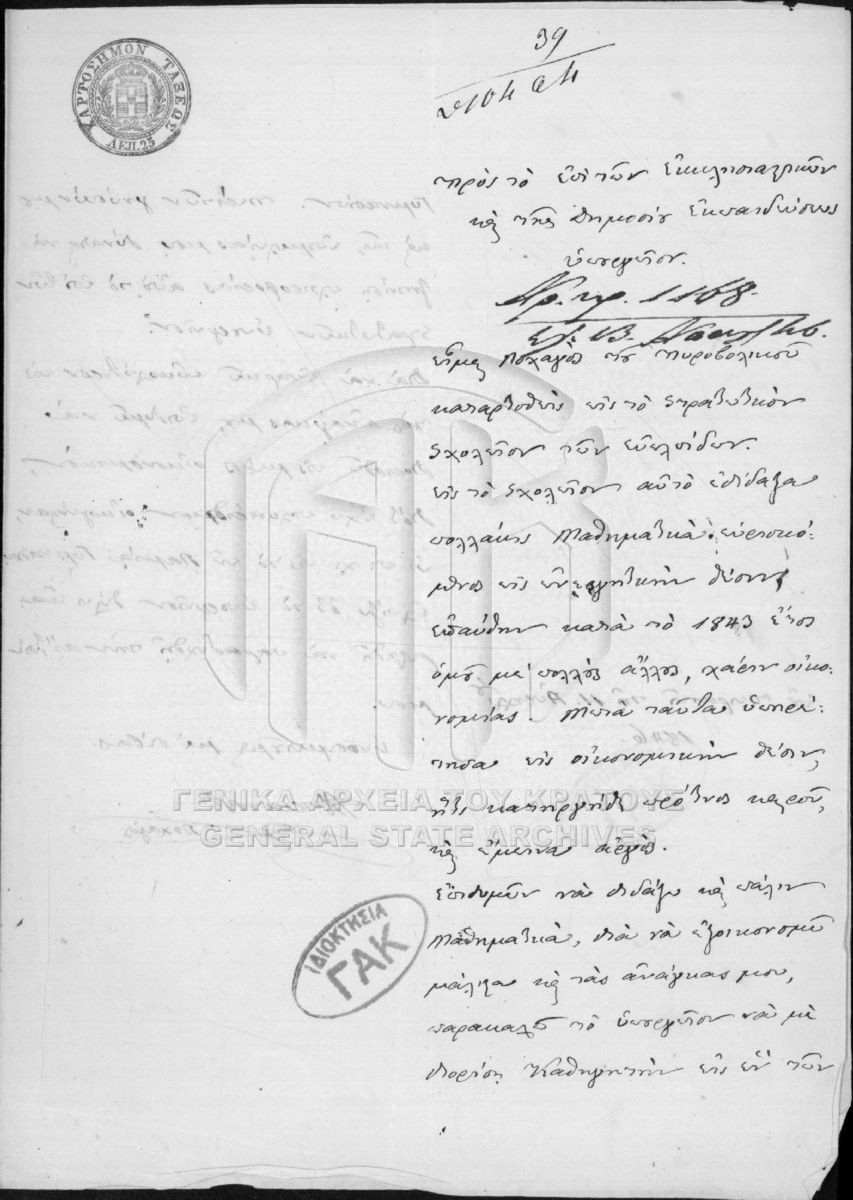 ΧΑΡΤΟΣΗΜΟΝ ΤΑΞΕΩΣ
ΛΕΠ. 25
39
Πρὸς τὸ ἐπὶ τῶν Ἐκκλησιαστικῶν
καὶ τῆς δημοσίου ἐκπαιδεύσεως
ὑπουργεῖον.
Ἀρ. πρ. 1168.
εἶμαι λοχαγὸς τοῦ πυροβολικοῦ
καταρτισθεὶς εἰς τὸ στρατιωτικὸν
σχολεῖον τῶν εὐελπίδων.
εἰς τὸ σχολεῖον αὐτὸ ἐδίδαξα
πολλάκις Μαθηματικὰ εὑρισκό-
μενος εἰς ἐνεργητικὴν θέσιν
ἐπαύθην κατὰ τὸ 1843 ἔτος
ὁμοῦ μὲ πολλοὺς ἄλλους, χάριν οἰκο-
νομίας. Μετὰ ταῦτα ὑπηρέ-
τησα εἰς οἰκονομικὴν θέσιν,
ἥτις κατηργήθη πρό τινος καιροῦ,
καὶ ἔμεινα ἀργός.
Ἐπιθυμῶν νὰ διδάξω καὶ πάλιν
Μαθηματικὰ, διὰ νὰ ἐξοικονομῶ
μάλιστα καὶ τὰς ἀνάγκας μου,
παρακαλῶ τὸ ὑπουργεῖον νὰ μὲ
διορίσῃ Καθηγητὴν εἰς ἓν τῶν
ΓΕΝΙΚΑ ΑΡΧΕΙΑ ΤΟΥ ΚΡΑΤΟΥΣ
GENERAL STATE ARCHIVES
ΙΔΙΟΚΤΗΣΙΑ
ΓΑΚ